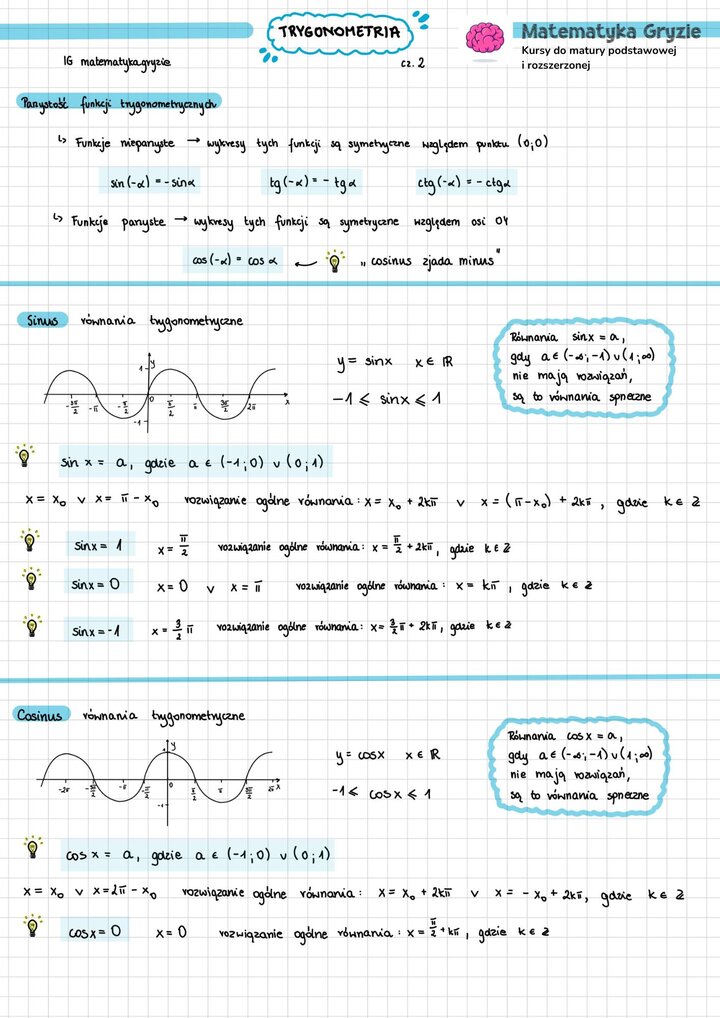 TRYGONOMETRIA
cz. 2
Matematyka Gryzie
Kursy do matury podstawowej
i rozszerzonej
IG matematyka.gryzie
Parzystość funkcji trygonometrycznych
↳ Funkcje nieparzyste → wykresy tych funkcji są symetryczne względem punktu (0;0)
sin(-α) = -sinα tg(-α) = - tgα ctg(-α) = - ctgα
↳ Funkcje parzyste → wykresy tych funkcji są symetryczne względem osi OY
cos(-α) = cos α ← „cosinus zjada minus"
Sinus równania trygonometryczne
y = sinx x ∈ ℝ
-1 ⩽ sinx ⩽ 1
Równania sinx = a,
gdy a ∈ (-∞;-1) ∪ (1;∞)
nie mają rozwiązań,
są to równania sprzeczne
y
1
-3π/2 -π -π/2 0 π/2 π 3π/2 2π x
-1
sin x = a, gdzie a ∈ (-1;0) ∪ (0;1)
x = x₀ ∨ x = π - x₀ rozwiązanie ogólne równania: x = x₀ + 2kπ ∨ x = (π-x₀) + 2kπ, gdzie k ∈ ℤ
sinx = 1 x = π/2 rozwiązanie ogólne równania: x = π/2 + 2kπ, gdzie k ∈ ℤ
sinx = 0 x = 0 ∨ x = π rozwiązanie ogólne równania: x = kπ, gdzie k ∈ ℤ
sinx = -1 x = 3/2 π rozwiązanie ogólne równania: x = 3/2 π + 2kπ, gdzie k ∈ ℤ
Cosinus równania trygonometryczne
y = cosx x ∈ ℝ
-1 ⩽ cosx ⩽ 1
Równania cosx = a,
gdy a ∈ (-∞;-1) ∪ (1;∞)
nie mają rozwiązań,
są to równania sprzeczne
y
1
-2π -3π/2 -π -π/2 0 π/2 π x
-1
cos x = a, gdzie a ∈ (-1;0) ∪ (0;1)
x = x₀ ∨ x = 2π - x₀ rozwiązanie ogólne równania: x = x₀ + 2kπ ∨ x = - x₀ + 2kπ, gdzie k ∈ ℤ
cosx = 0 x = 0 rozwiązanie ogólne równania: x = π/2 + kπ, gdzie k ∈ ℤ